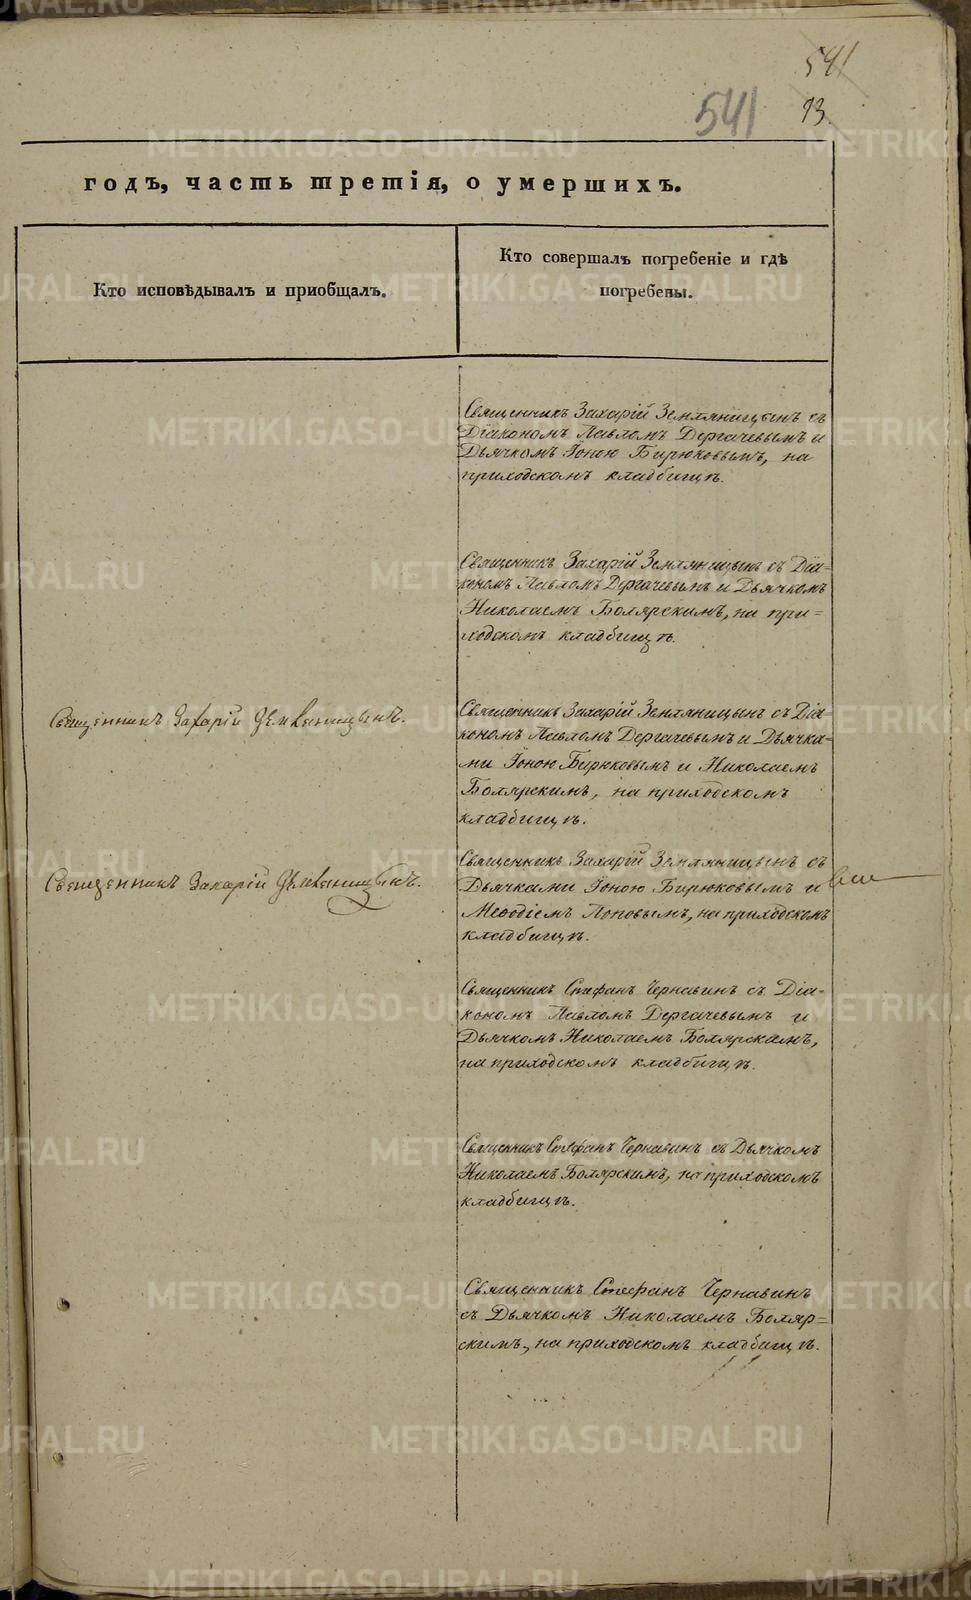 541
541
13.
годъ, часть третія, о умершихъ.
Кто исповѣдывалъ и приобщалъ.
Кто совершалъ погребеніе и гдѣ
погребены.
Священникъ Захарій Земляницынъ съ
Діакономъ Павломъ Дергачевымъ и
Дьячкомъ Іоною Бирюковымъ, на
приходскомъ кладбищѣ.
Священникъ Захарій Земляницынъ съ Діа=
кономъ Павломъ Дергачевымъ и Дьячкомъ
Николаемъ Болярскимъ, на при=
ходскомъ кладбищѣ.
Священникъ Захарій Земляницынъ.
Священникъ Захарій Земляницынъ съ Діа=
кономъ Павломъ Дергачевымъ и Дьячка=
ми Іоною Бирюковымъ и Николаемъ
Болярскимъ, на приходскомъ
кладбищѣ.
Священникъ Захарій Земляницынъ.
Священникъ Захарій Земляницынъ съ
Дьячками Іоною Бирюковымъ и
Меѳодіемъ Поповымъ, на приходскомъ
кладбищѣ.
Священникъ Стефанъ Чернавинъ съ Діа=
кономъ Павломъ Дергачевымъ и
Дьячкомъ Николаемъ Болярскимъ,
на приходскомъ кладбищѣ.
Священникъ Стефанъ Чернавинъ съ Дьячкомъ
Николаемъ Болярскимъ, на приходскомъ
кладбищѣ.
Священникъ Стефанъ Чернавинъ
съ Дьячкомъ Николаемъ Боляр=
скимъ, на приходскомъ кладбищѣ.
METRIKI.GASO-URAL.RU